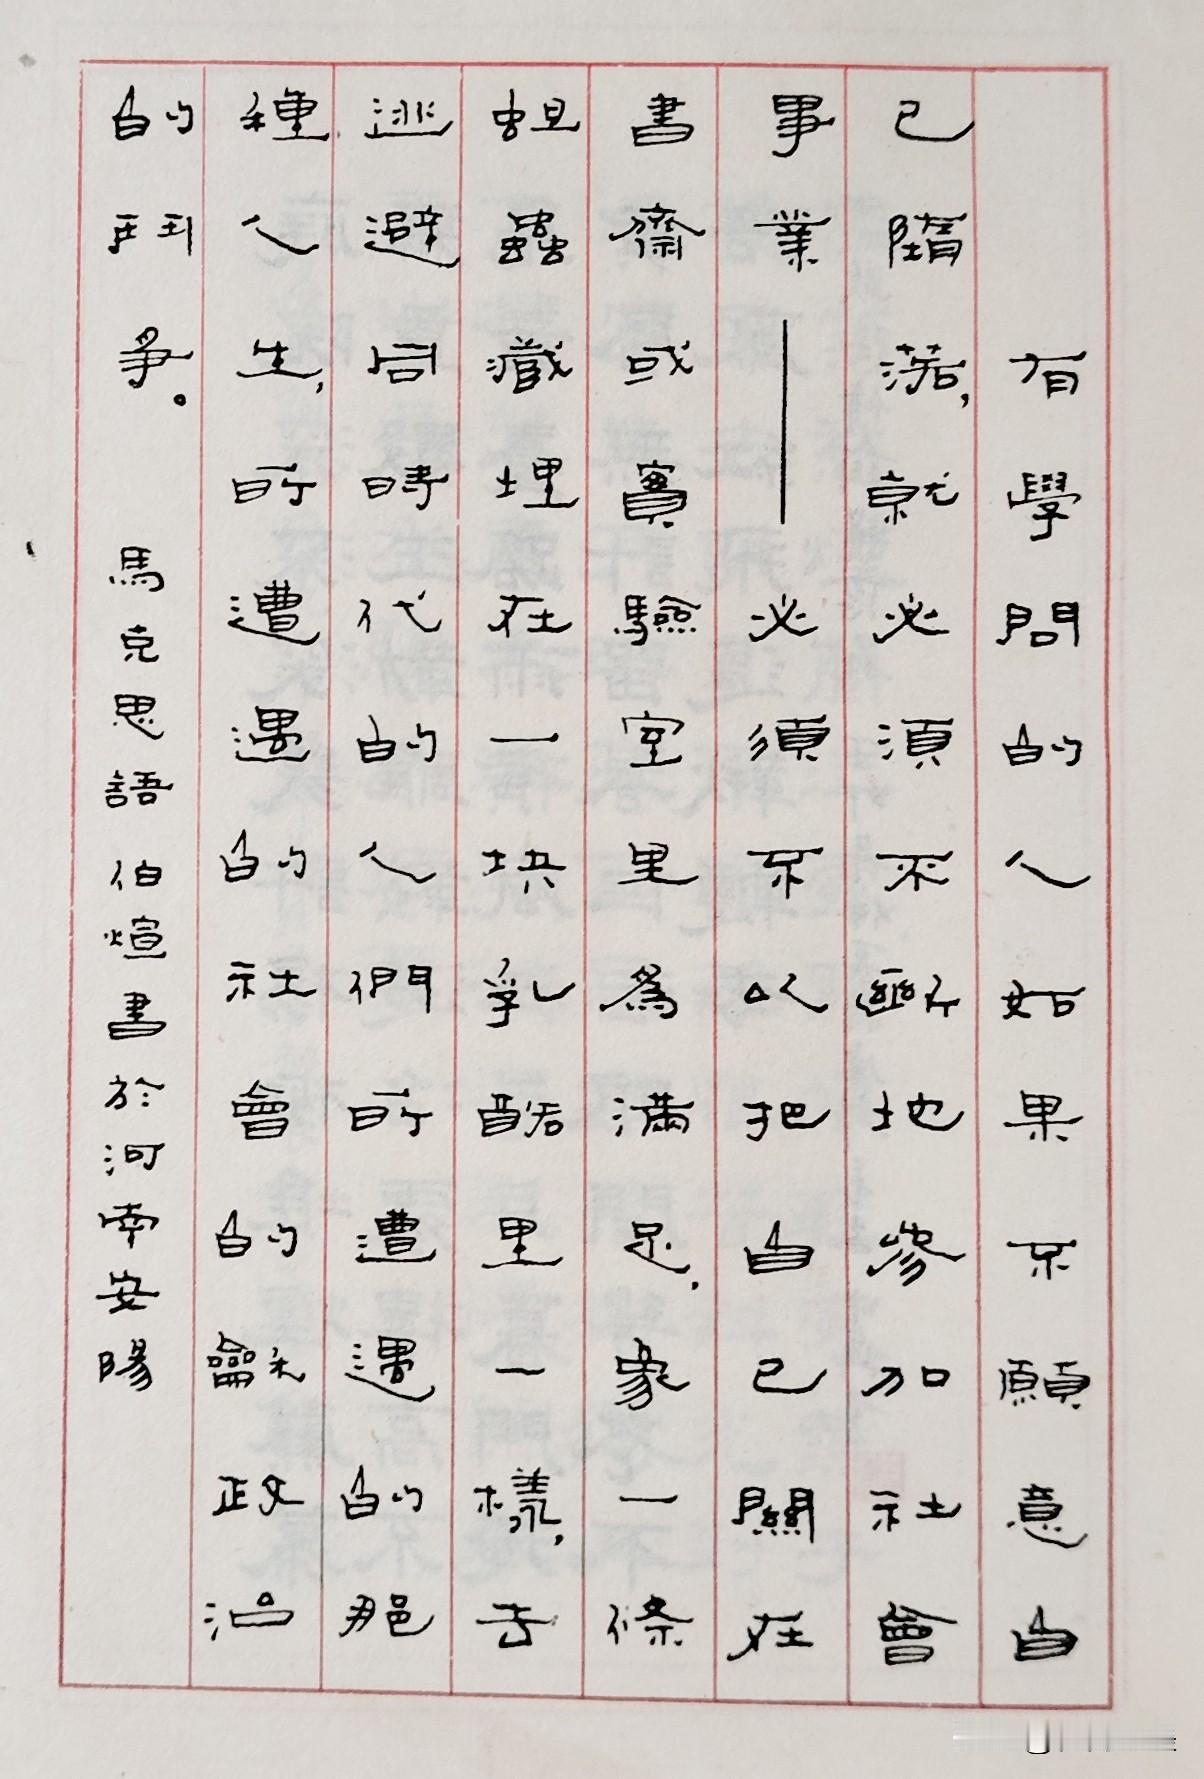 有學問的人如果不願意自
己隋落，就必須不斷地參加社會
事業——必須不以把自己關在
書齋或實驗室里為滿足，象一條
蛆蟲藏埋在一块乳酪里一樣，去
逃避同時代的人們所遭遇的那
種人生，所遭遇的社會的龢政治
的鬥爭。
馬克思語 伯煊書於河南安陽